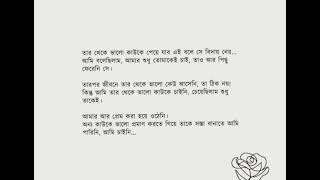 তার থেকে ভালো কাউকে পেয়ে যাব এই বলে সে বিদায় নেয়...
আমি বলেছিলাম, আমার শুধু তোমাকেই চাই, তাও আর পিছু
ফেরেনি সে।
তারপর জীবনে তার থেকে ভালো কেউ আসেনি, তা ঠিক নয়!
কিন্তু আমি তার থেকে ভালো কাউকে চাইনি, চেয়েছিলাম শুধু
তাকেই।
আমার আর প্রেম করা হয়ে ওঠেনি।
অন্য কাউকে ভালো প্রমাণ করতে গিয়ে তাকে সস্তা বানাতে আমি
পারিনি, আমি চাইনি...